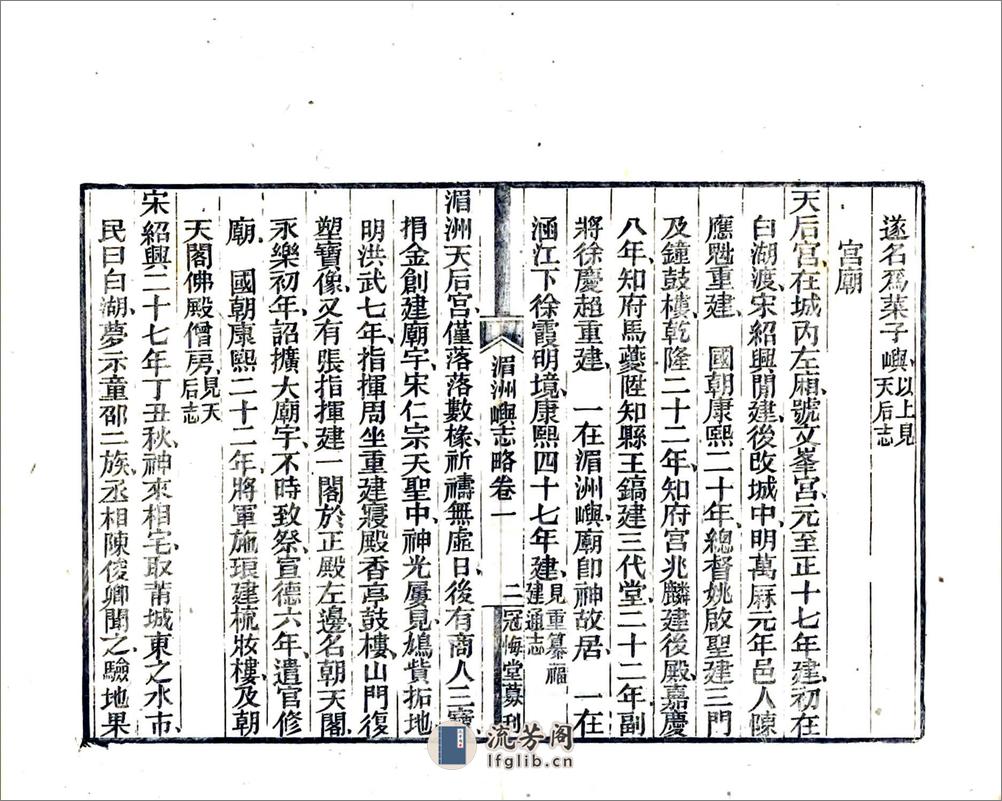 遂名爲菜子嶼、以上見天后志
宮廟
天后宮、在城內左厢、號文峯宮、元至正十七年建、初在
白湖渡、宋紹興間建、後改城中、明萬厤元年邑人陳
應魁重建　國朝康熙二十年、總督姚啟聖建三門
及鐘鼓樓、乾隆二十二年、知府宮兆麟建後殿、嘉慶
八年、知府馬夔陞知縣王鎬建三代堂、二十二年副
將徐慶超重建　一在湄洲嶼、廟卽神故居　一在
涵江下徐霞明境、康熙四十七年建、見重纂福建通志
湄洲嶼志略卷一　二　冠悔堂募刊
湄洲天后宮、僅落落數椽、祈禱無虛日、後有商人三寶
捐金創建廟宇、宋仁宗天聖中、神光屢見、鳩貲拓地
明洪武七年、指揮周坐重建寢殿香亭鼓樓山門、復
塑寶像、又有張指揮建一閣於正殿左邊、名朝天閣
永樂初年、詔擴大廟宇、不時致祭、宣德六年、遣官修
廟　國朝康熙二十二年、將軍施琅建梳妝樓、及朝
天閣佛殿僧房、見天后志
宋紹興二十七年丁丑秋、神來相宅、取莆城東之水市
民曰白湖、夢示童邵二族、丞相陳俊卿聞之、驗地果
流芳阁
lfglib.cn